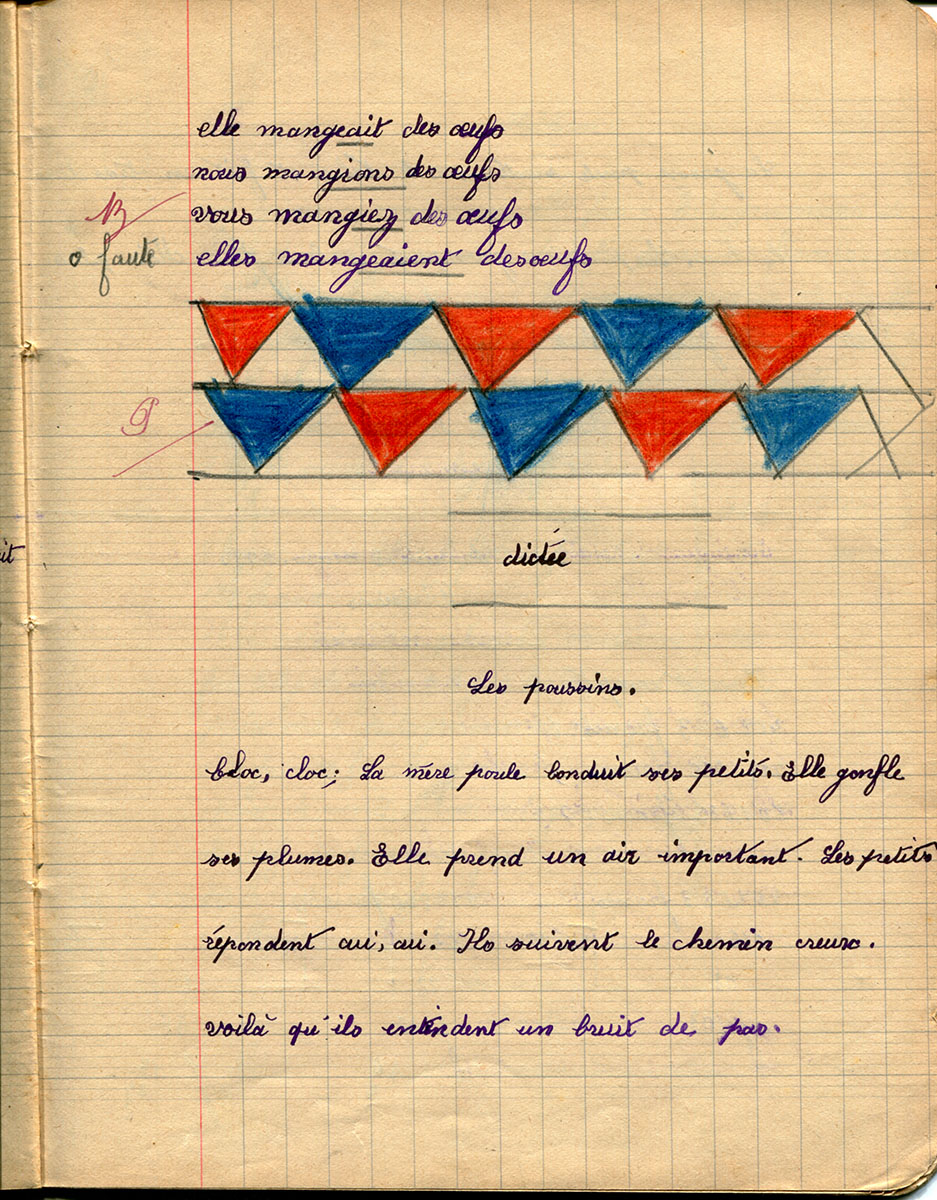 elle mangeait des œufs
nous mangions des œufs
B vous mangiez des œufs
0 faute elles mangeaient des œufs
dictée
Les poussins.
Cloc, cloc; La mère poule conduit ses petits. Elle gonfle
ses plumes. Elle prend un air important. Les petits
répondent cui, cui. Ils suivent le chemin creux.
voilà qu'ils entendent un bruit de pas.